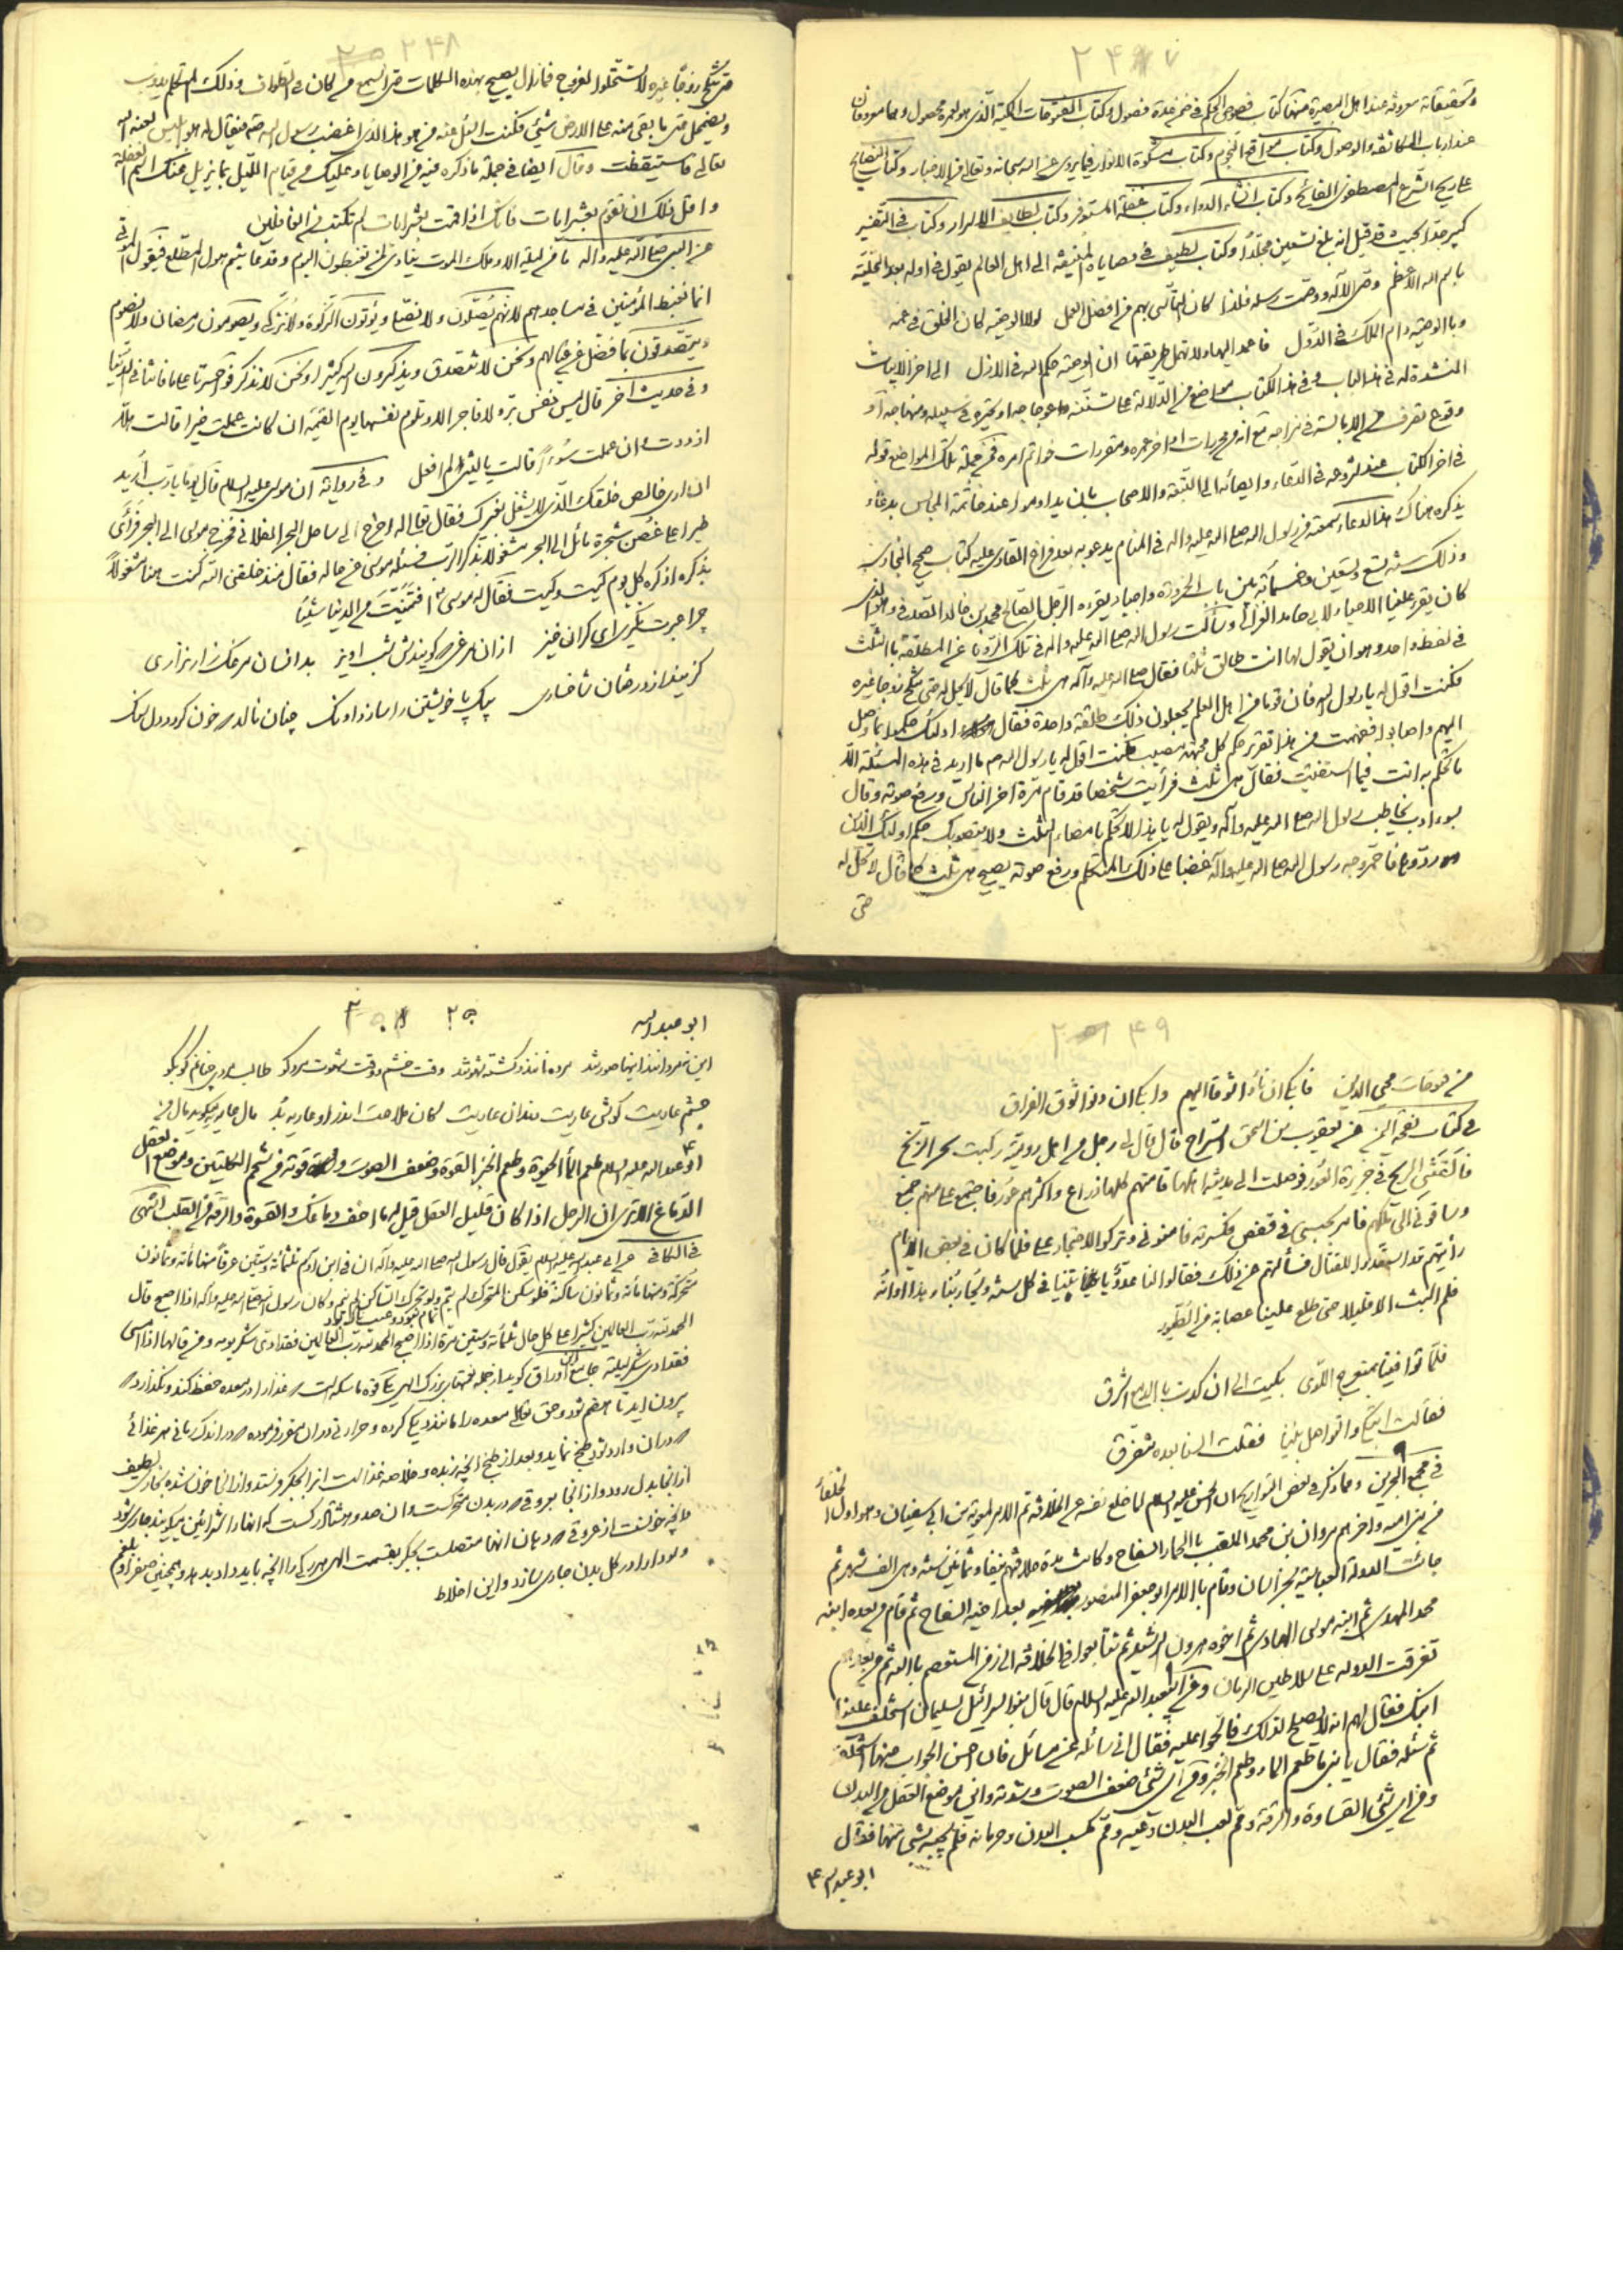 ۲۴۷
وتحقيقاته معروفة عند اهل البصيرة منها كتاب فصوص الحكم في ضمن عدة فصول وكتاب الفتوحات المكية الذي هو لعمره محصول وهما معروفان
عند ارباب المكاشفة والوصول وكتاب مواقع النجوم وكتاب مشكوة الانوار فيما يروى عن الله سبحانه وتعالى من الاخبار وكتاب النصايح
وكتاب انشاء الدواير وكتاب عقلة المستوفز وكتاب لطايف الاسرار وكتاب في التفسير
كبير جدا بحيث قد قيل انه بلغ تسعين مجلدا وكتاب لطيف في وصاياه المنيفة الى اهل العالم يقول في اوله بعد التحلية
باسم الله الاعظم وصى الاله ووصت رسله فلذا كان التأسى بهم من افضل العمل لولا الوصية كان الخلق في عمه
وبالوصية دام الملك في الدول فاعمد اليها ولا تهمل طريقتها ان الوصية حكم الله في الازل الى اخر الابيات
المنشدة له في هذا الباب وفي هذا الكتاب مواضع من الدلالة على تسننه
في اخر الكتاب عند شروعه في الدعاء وايصائه الى التبعة والاصحاب بان يداوموا عند خاتمة المجالس بدعاء
يذكره هناك هذا الدعاء سمعته من رسول الله صلى الله عليه واله في المنام يدعو به بعد فراغ القارى عليه كتاب صحيح البخارى
وذلك سنة تسع وتسعين وخمسمائة بين باب الحزورة واجياد يقرءه الرجل الصالح محمد بن خالد الصدفى وهو الذى
كان يقرء علينا الاحياء لابى حامد الغزالى وسألت رسول الله صلى الله عليه واله في تلك الرؤيا عن المطلقة بالثلث
في لفظ واحد وهو ان يقول لها انت طالق ثلثا فقال صلى الله عليه وآله هى ثلث كما قال لا تحل له حتى تنكح زوجا غيره
فكنت اقول له يا رسول الله فان قوما من اهل العلم يجعلون ذلك طلقة واحدة فقال اولئك حكموا بما وصل
اليهم واصابوا ففهمت من هذا تقرير حكم كل مجتهد مصيب فكنت اقول له يا رسول الله ما اريد في هذه المسئلة الا
ما تحكم به انت فيما استفتيت فقال هى ثلث فرأيت شخصا قد قام من آخر الناس ورفع صوته وقال
بسوء ادب يخاطب رسول الله صلى الله عليه وآله ويقول له يا هذا لا تحكم بامضاء الثلث ولا بتصويبك حكم اولئك الذين
ردوها فاحمر وجه رسول الله صلى الله عليه وآله غضبا على ذلك المتكلم ورفع صوته يصيح هى ثلث كما قال لا تحل له
حتى
۲۴۸
حتى تنكح زوجا غيره لا تستحلوا الفروج فما زال يصيح بهذه الكلمات حتى اسمع من كان في الطواف وذلك المتكلم يذوب
ويضمحل حتى ما بقى منه على الارض شيئ فكنت اسئل عنه من هو هذا الذى اغضب رسول الله صلعم فيقال له هو ابليس لعنه الله
تعالى فاستيقظت وقال ايضا في جملة ما ذكره فيه من الوصايا وعليك من قيام الليل بما يزيل عنك اسم الغفلة
واقل ذلك ان تقوم بعشر ايات فانك اذا قمت بعشر ايات لم تكتب من الغافلين
عن النبى صلى الله عليه واله ما من ليلة الا وملك الموت ينادى لمن تغبطون اليوم وقد عاينتم هول المطلع فيقول الموتى
انما نغبط المؤمنين في مساجدهم لانهم يصلون ولا نصلى ويؤتون الزكوة ولا نزكى ويصومون رمضان ولا نصوم
ويتصدقون بما فضل عن عيالهم ونحن لا نتصدق ويذكرون الله كثيرا ونحن لا نذكر فوا حسرتا على ما فاتنا في الدنيا
وفي حديث آخر قال ليس نفس برة ولا فاجرة الا وتلوم نفسها يوم القيمة ان كانت عملت خيرا قالت هلا
ازددت وان عملت سوءا قالت يا ليتنى لم افعل وفي رواية ان موسى عليه السلام قال يوما يا رب اريد
ان ارى خالص خلقك الذى لا يشغل بغيرك فقال تعالى له اخرج الى ساحل البحر الفلانى فخرج موسى الى البحر فرأى
طيرا على غصن شجرة مائل الى البحر مشغولا بذكر الرب فسئله موسى عن حاله فقال منذ خلقنى الله كنت هنا مشغولا
بذكره اذكره كل يوم كيت وكيت فقال له موسى افتمنيت من الدنيا شيئا
از ان مرغى كه گويندش شب اويز بدانسان مرغك زار نزارى
گزيند از درختان شاخسارى بيك پا خويشتن را سازد اونك چنان نالد كه خون گردد دل سنگ
۲۴۹
من فتوحات محيى الدين فابكى ان نأوا شوقا اليهم وابكى ان دنوا خوف الفراق
في كتاب نفحة اليمن عن يعقوب بن اسحق السراج قال قال لى رجل من اهل رومية ركبت بحر الزنج
فالقتنى الريح في جزيرة العور فوصلت الى مدينة اهلها قامتهم كلها ذراع واكثرهم عور فاجتمع على منهم جمع
وساقونى الى ملكهم فامر بحبسى في قفص فكسرته فامنونى وتركوا الاحتجار على فلما كان في بعض الايام
رأيتهم قد استعدوا للقتال فسألتهم عن ذلك فقالوا لنا عدو يأتينا في كل سنة ويحاربنا وهذا اوانه
فلم البث الا قليلا حتى طلع علينا عصابة من الطيور
فلما توافينا بمنعرج اللوى بكيت الى ان كدت بالدمع اشرق
فقالت اتبكى والتواصل بيننا فقلت السنا بعده نتفرق
في مجمع البحرين ومما ذكر في بعض التواريخ ان الحسن عليه السلام لما خلع نفسه عن الخلافة تم الامر لمعوية بن ابى سفيان وهو اول الخلفاء
من بنى امية واخرهم مروان بن محمد الملقب بالحمار السفاح وكانت مدة خلافتهم نيفا وثمانين سنة وهى الف شهر ثم
جائت الدولة العباسية بخراسان وقام بالامر ابو جعفر المنصور بعد اخيه السفاح ثم قام من بعده ابنه
محمد المهدى ثم ابنه موسى الهادى ثم اخوه هرون الرشيد ثم تتابعوا في الخلافة الى زمن المستعصم بالله ثم من بعدهم
تفرقت الدولة على سلاطين الزمان وعن ابى عبد الله عليه السلام قال قال بنو اسرائيل لسليمان استخلف علينا
ابنك فقال لهم انه لا يصلح لذلك فالحوا عليه فقال انى سائله عن مسائل فان احسن الجواب منها استخلفه
ثم سئله فقال يا بنى ما طعم الماء وطعم الخبز ومن اى شئ ضعف الصوت وشدته واين موضع العقل من البدن
ومن اى شئ القساوة والرقة ومم تعب البدن ودعته ومم تكسب البدن وحرمانه فلم يجبه بشئ منها فقال
ابو عبد الله ع
۲۵۰
ابو عبد الله
اين نه مردانند اينها صورتند مرده نانند وكشته شهوتند وقت خشم ووقت شهوت مرد كو طالب مردى چنانم كو بكو
چشم عاريت گوش عاريت دندان عاريت
ابو عبد الله عليه السلام طعم الماء الحيوة وطعم الخبز القوة وضعف الصوت وقوته من شحم الكليتين وموضع العقل
الدماغ الا ترى ان الرجل اذا كان قليل العقل قيل له ما اخف دماغك والقسوة والرقة من القلب انتهى
في الكافى عن ابى عبد الله عليه السلام يقول قال رسول الله صلى الله عليه وآله ان في ابن آدم ثلثمائة وستين عرقا منها مائة وثمانون
متحركة ومنها مائة وثمانون ساكنة فلو سكن المتحرك لم ينم ولو تحرك الساكن لم ينم وكان رسول الله صلى الله عليه وآله اذا اصبح قال
الحمد لله رب العالمين كثيرا على كل حال ثلثمائة وستين مرة اذا اصبح الحمد لله رب العالمين فقد ادى شكر يومه ومن قالها اذا امسى
فقد ادى شكر ليلته جامع اين اوراق گويد از جمله نعمتهاى بزرك الهى يكى قوه ماسكه است كه غذا را در معده حفظ كند ونگذارد كه
بيرون ايد تا هضم شود وحق تعالى معده را مانند ديگى كرده وحرارتى در ان مقرر فرموده كه در اندك زمانى هر غذائى
كه در ان وارد شود طبخ نمايد وبعد از طبخ انچه زبده وخلاصه غذا است انرا بجگر فرستد واز انجا خون شده بخارى لطيف
از انجا بدل رود واز انجا بعروقى كه در بدن متحركست وان صد وهشتاد ركست كه انها را شرائين ميگويند جارى شود
وانچه خونست از عروقى كه دهان انها متصلست بجگر بقسمت الهى هر ركى را انچه بايد داد بدهد وهمچنين صفرا وبلغم
وسودا را در كل بدن جارى سازد واين اخلاط